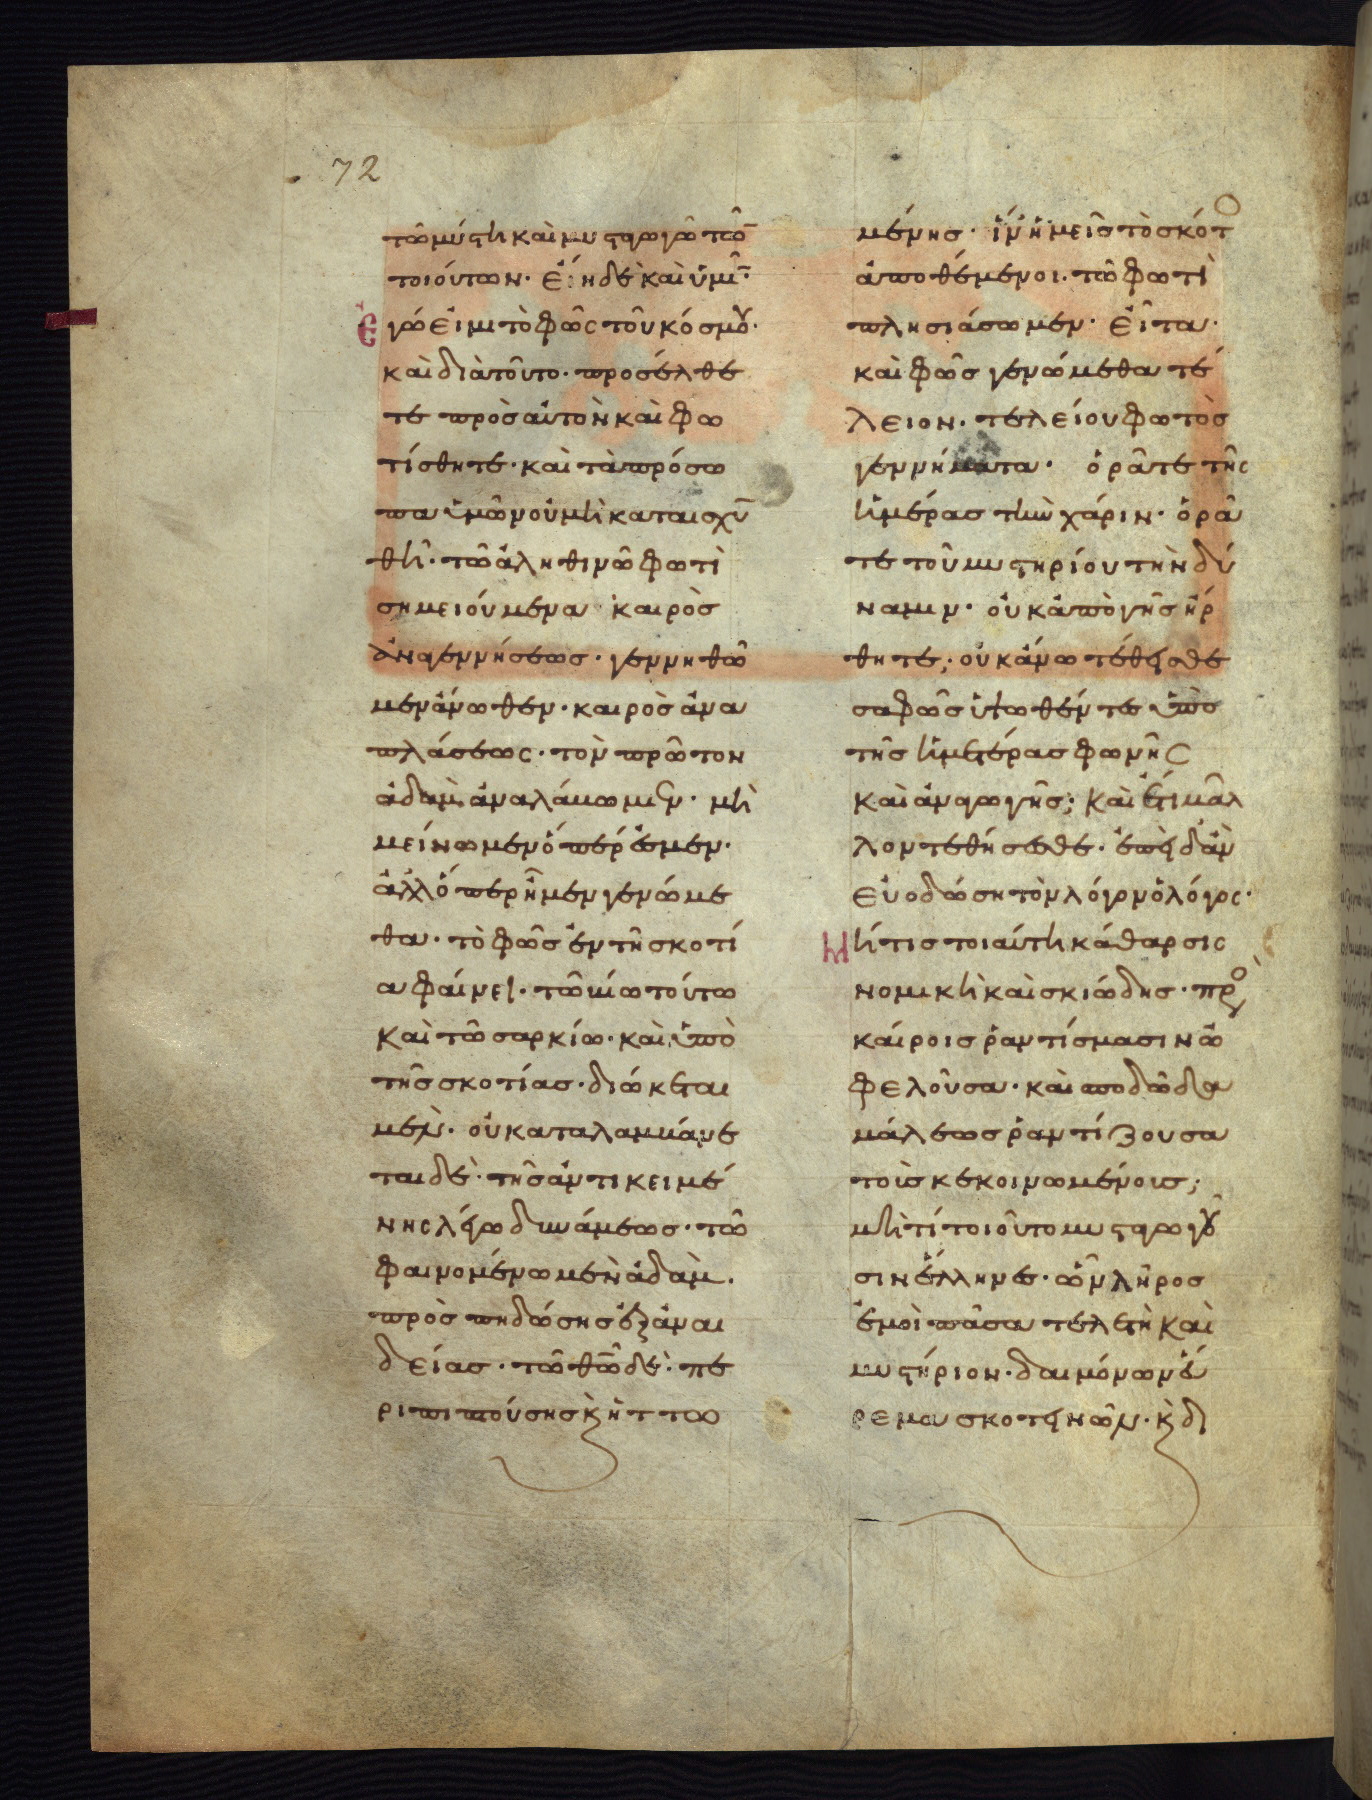 72
τῶ μύστη καὶ μυσταγωγῶ τῶν
ποιούντων. Εἴη δὲ καὶ ὑμῖν·
Εγώ εἰμι τὸ φῶς τοῦ κόσμου·
καὶ διὰ τοῦτο· προσέλθε
τε πρὸς αὐτὸν καὶ φω
τίσθητε· καὶ τὰ πρόσω
πα ὑμῶν οὐ μὴ καταισχυν
θῆ· τῶ ἀληθινῶ φωτὶ
σημειούμενα· καιρὸς
ἀναγεννήσεως· γεννηθῶ
μεν ἄνωθεν· καιρὸς ἀνα
πλάσεως· τὸν πρῶτον
ἀδαμ ἀναλάβωμεν· μὴ
μείνωμεν ὅπερ ἐσμέν·
ἀλλ' ὅπερ ἦμεν γενώμε
θα· τὸ φῶς ἐν τῆ σκοτί
α φαίνει· τῶ βίω τούτω
καὶ τῶ σαρκίω· καὶ ὑπὸ
τῆς σκοτίας· διώκεται
μὲν· οὐ καταλαμβάνε
ται δὲ· τῆς ἀντικειμέ
νης λέγω δυνάμεως· τῶ
φαινομένω μὲν ἀδὰμ·
προσπηδώσης ἐξ ἀναι
δείας· τῶ θῶ δὲ· πε
ριπιπτούσης κὶ ἡττω
μένης· ἵν' ἡμεῖς τὸ σκότος
ἀποθέμενοι· τῶ φωτὶ
πλησιάσωμεν· Εἶτα·
καὶ φῶς γενώμεθα τέ
λειον· τελείου φωτὸς
γεννήματα· ὁρᾶτε τῆς
ἡμέρας τὴν χάριν· ὁρᾶ
τε τοῦ μυστηρίου τὴν δύ
ναμιν· οὐκ ἀπὸ γῆς ἤρ
θητε; οὐκ ἄνω τέθεισθε
σαφῶς ὑψωθέντες ὑπὸ
τῆς ἡμετέρας φωνῆς
καὶ ἀναγωγῆς; καὶ ἔτι μᾶλ
λον τεθήσεσθε· ἐπειδὰν
Εὐοδώση τὸν λόγον ὁ λόγος·
Μή τις τοιαύτη κάθαρσις
νομικὴ καὶ σκιώδης· προσ
καίροις ῥαντίσμασιν ὠ
φελοῦσα· καὶ σποδῶ δα
μάλεως ῥαντίζουσα
τοὺς κεκοινωμένους;
μὴ τί τοιοῦτο μυσταγωγοῦ
σιν ἕλληνες· ὧν λῆρος
ἐμοὶ πᾶσα τελετὴ καὶ
μυστήριον· δαιμόνων εὕ
ρεμα σκοτεινῶν· κὶ δι